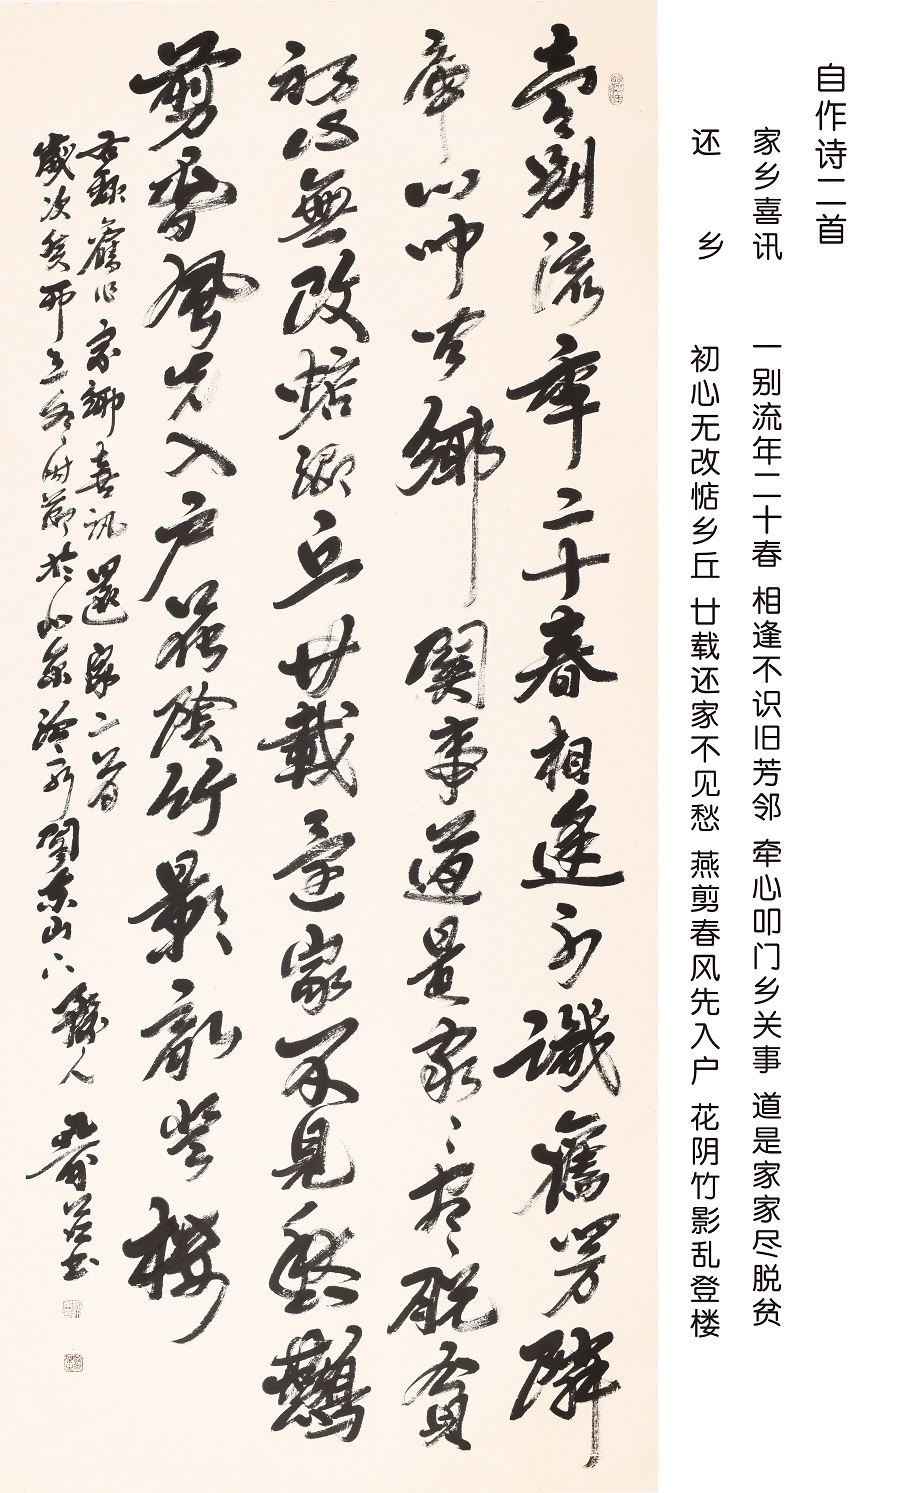 自作诗二首
家乡喜讯 一别流年二十春 相逢不识旧芳邻 牵心叩门乡关事 道是家家尽脱贫
还乡 初心无改惦乡丘 廿载还家不见愁 燕剪春风先入户 花阴竹影乱登楼
壹别流年二十春相逢不识旧芳邻
牵心叩门乡关事道是家家尽脱贫
初心無改惦鄉丘廿載還家不見愁燕
剪春風先入户花陰竹影亂登楼
右録舊作家鄉喜訊還家二首
歲次癸卯